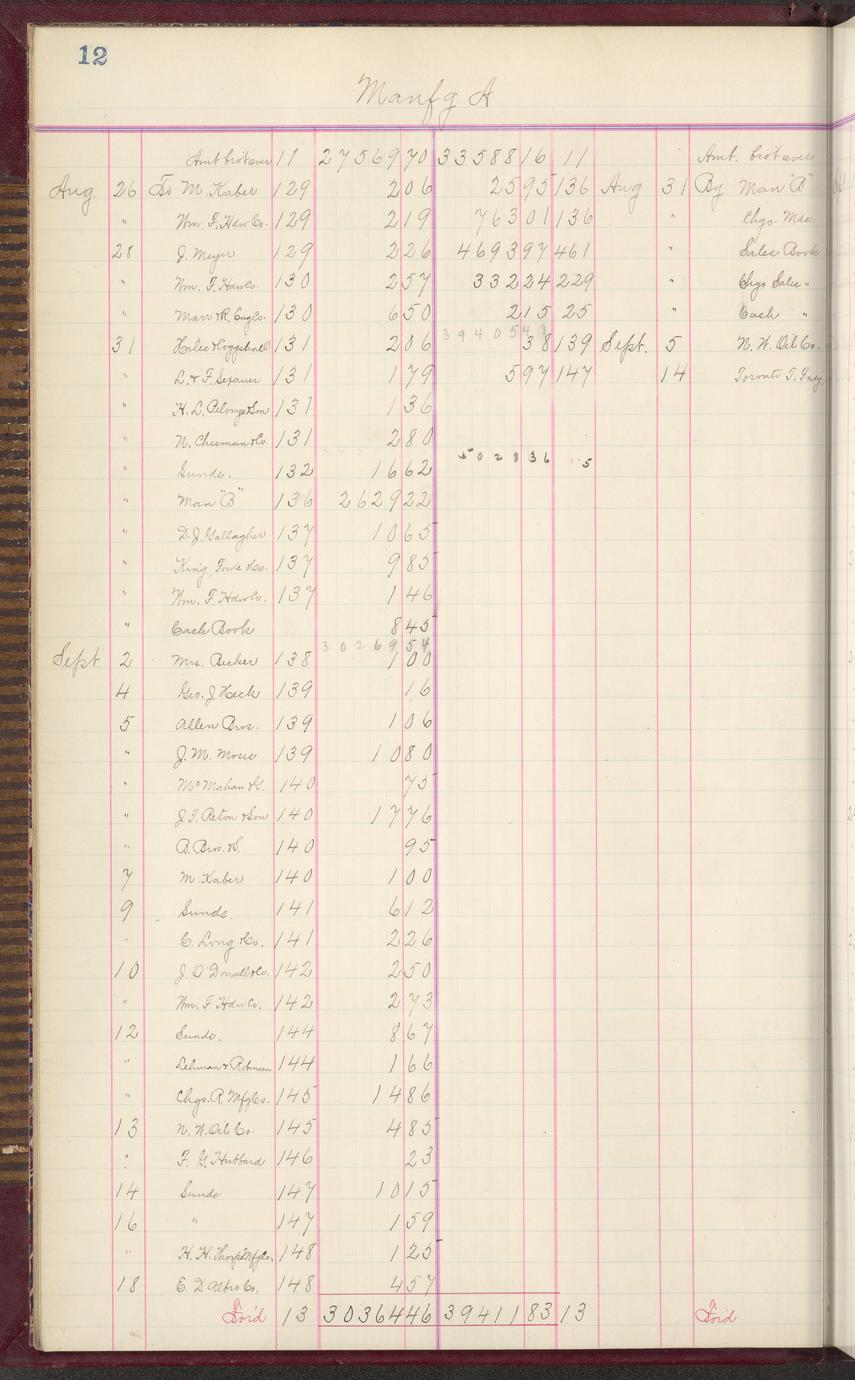 12
Manfg A
Amt brot over 11 27569 70 33588 16 11 Amt. brot over
Aug. 26 To M. Kaber 129 2 06 25 95 136 Aug 31 By Man "B"
" Wm. F. Hdw Co. 129 2 19 763 01 136 " Chgo. Mdse
28 J. Meyer 129 2 26 4693 97 461 " Sales Book
" Wm. F. Hdw Co. 130 2 57 332 24 229 " Chgo Sales "
" Marr & R. Eng Co. 130 6 50 2 15 25 " Cash "
39405 48
31 Hiles & Coggshall 131 2 06 38 139 Sept. 5 N. W. Oil Co.
" L. & F. Sexauer 131 1 79 5 97 147 14 Toronto T. Fndy
" H. L. Pelouze & Son 131 1 36
" N. Chesman & Co. 131 2 80
5028 36 5
" Sunds. 132 16 62
" Man "B" 136 2629 22
" D. J. Gallagher 137 10 65
" King, Fowle & Co. 137 9 85
" Wm. F. Hdw Co. 137 1 46
" Cash Book 8 45
30269 54
Sept. 2 Mrs. Becker 138 1 00
4 Geo. J. Heck 139 16
5 Allen Bros. 139 1 06
" J. M. 139 10 80
" McMahan & G. 140 75
" J. T. & Son 140 17 76
" B. Bros. & S. 140 95
7 M. Kaber 140 1 00
9 Sunds. 141 6 12
" C. Long & Co. 141 2 26
10 J. O'Donall & Co. 142 2 50
" Wm. F Hdw Co. 142 2 73
12 Sunds. 144 8 67
" Lehman & Robinson 144 1 66
" Chgo. R. Mfg Co. 145 14 86
13 N. W. Oil Co. 145 4 85
" F. G. Hubbard 146 23
14 Sunds 147 10 15
16 " 147 1 59
" H. H. Thorp Mfg Co. 148 1 25
18 E. D. Albro Co. 148 4 57
For'd 13 30364 46 39411 83 13 For'd